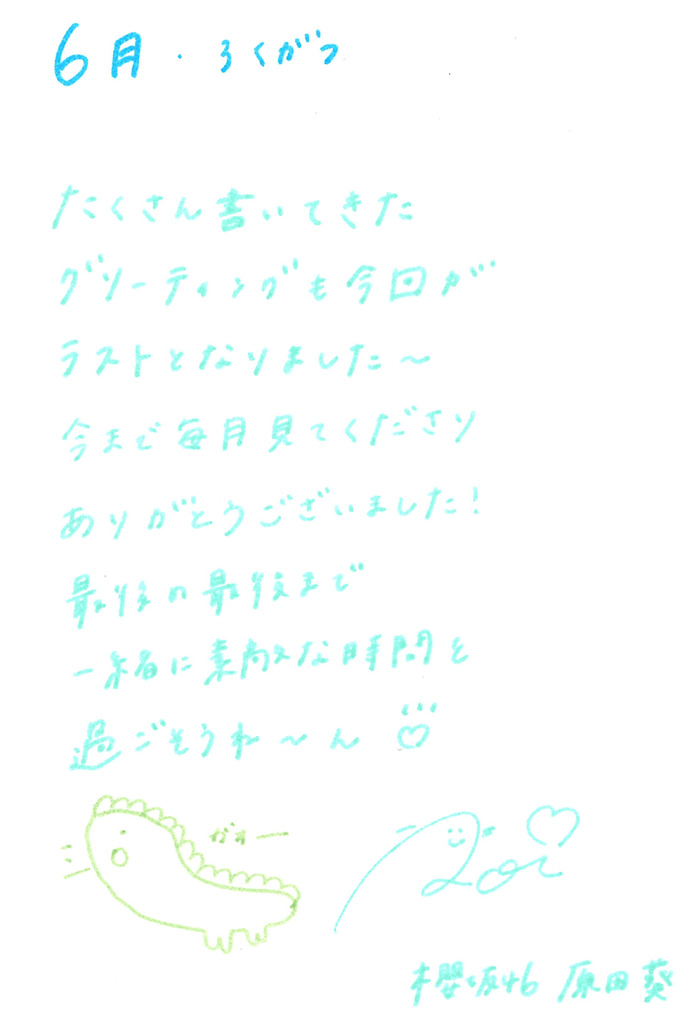 6月・ろくがつ
たくさん書いてきた
グリーティングも今回が
ラストとなりました〜
今まで毎月見てくださり
ありがとうございました!
最後の最後まで
一緒に素敵な時間を
過ごそうね〜ん♡
がおー
Aoi♡
櫻坂46 原田葵